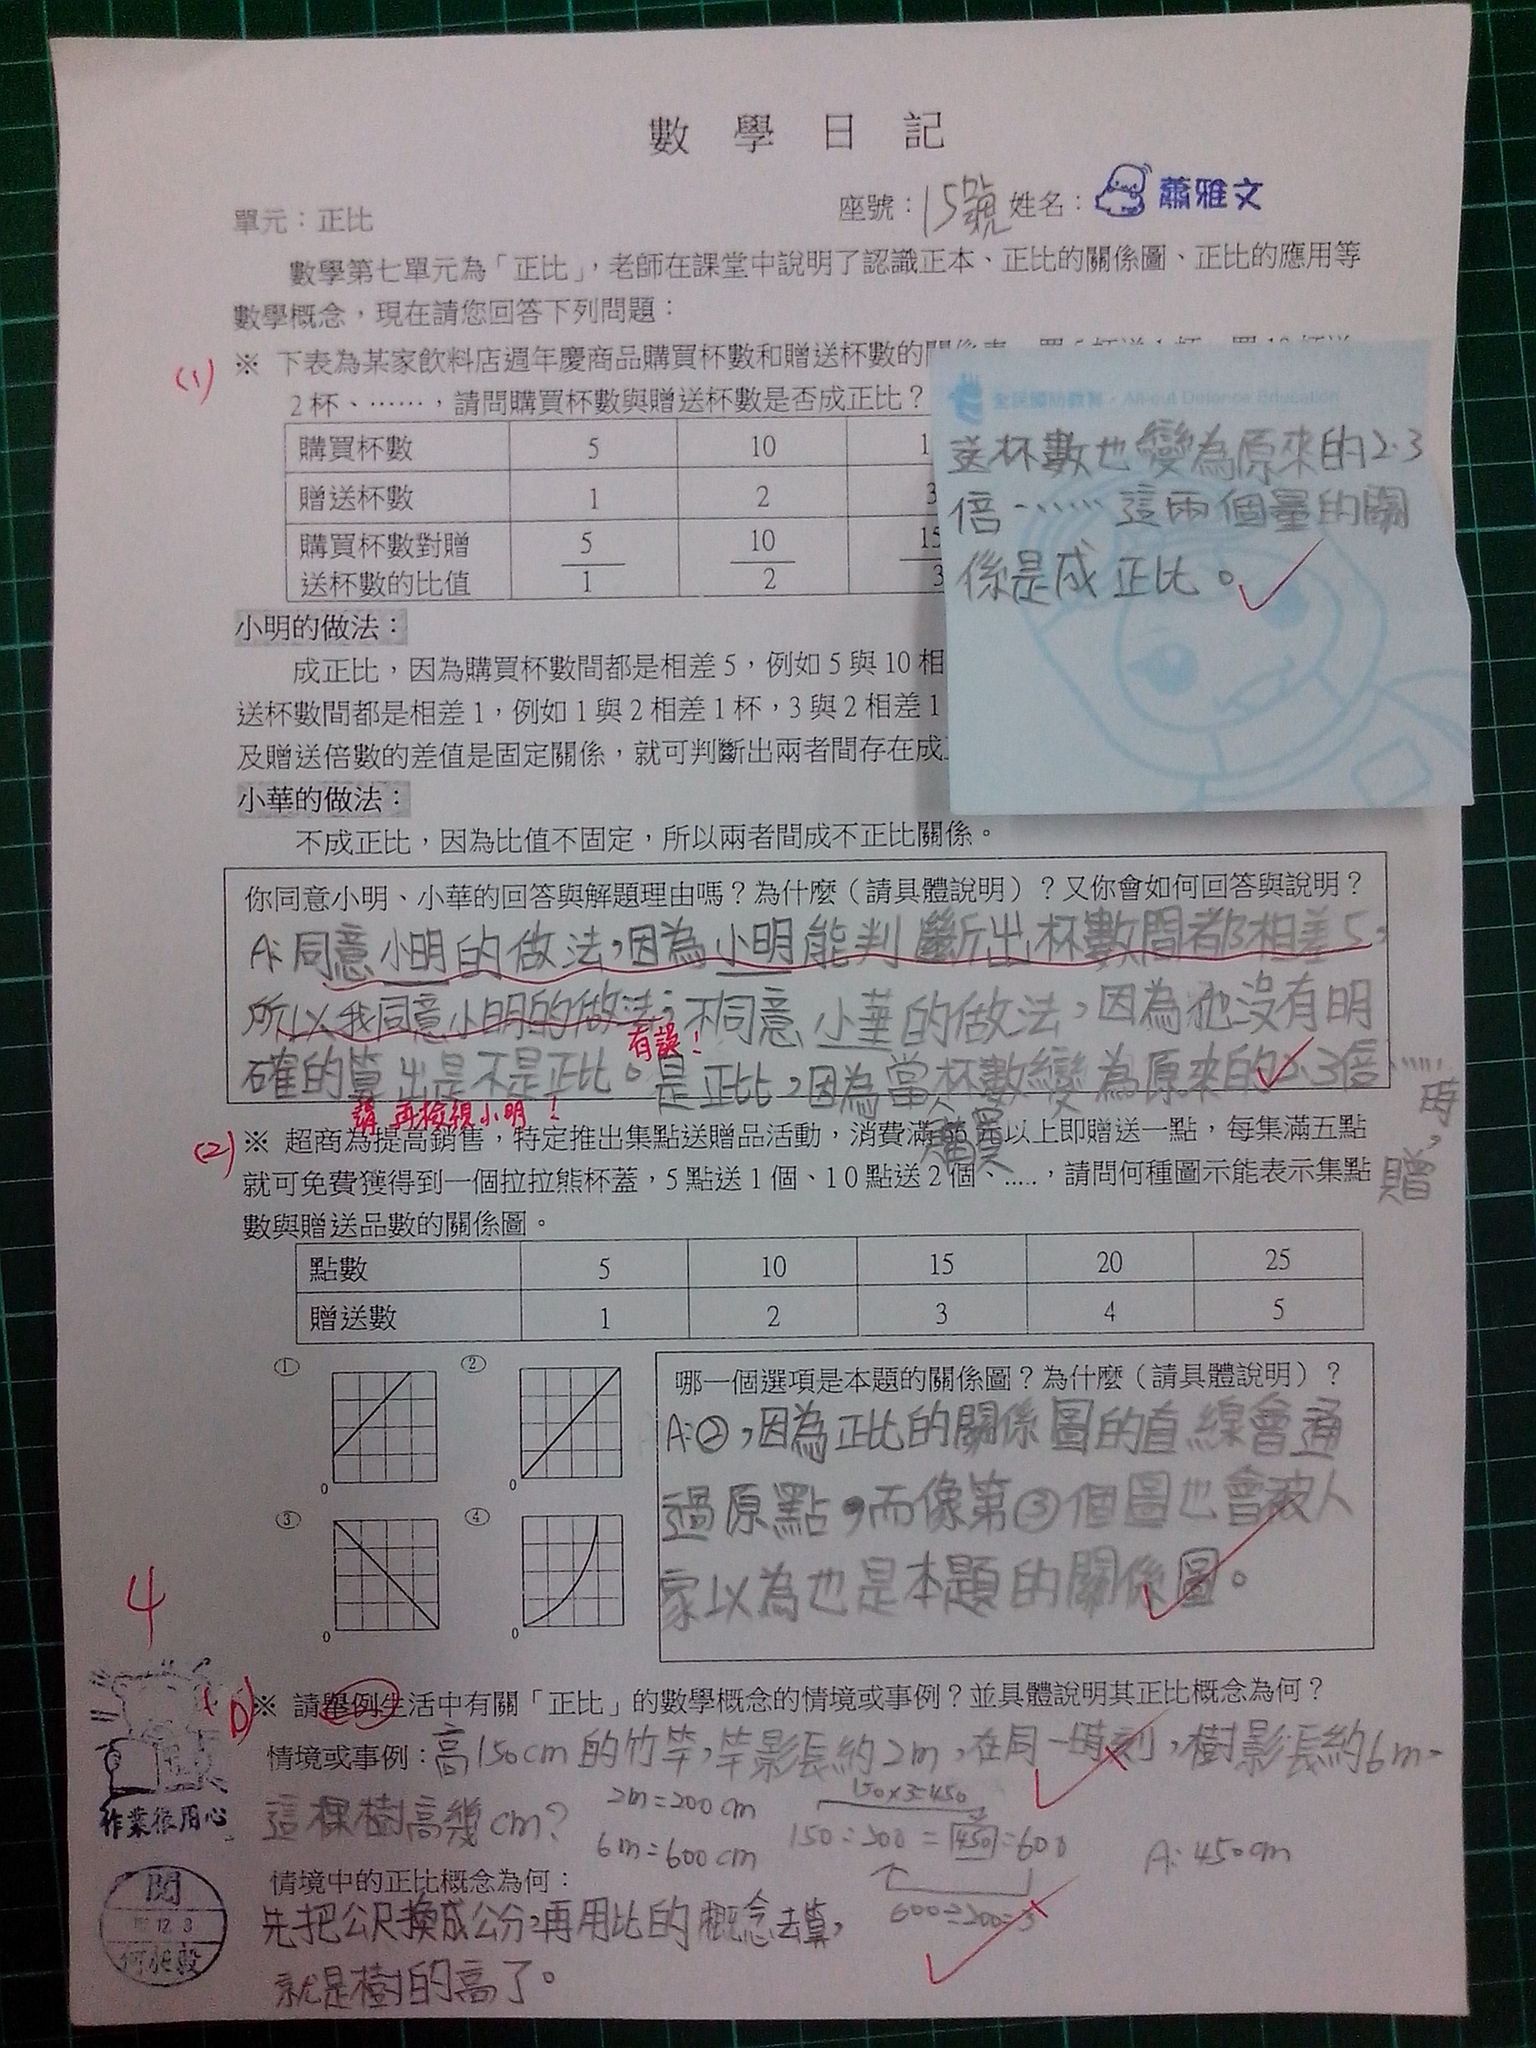 數學日記
座號：15號 姓名：蕭雅文
單元：正比
數學第七單元為「正比」，老師在課堂中說明了認識正本、正比的關係圖、正比的應用等
數學概念，現在請您回答下列問題：
(1) ※ 下表為某家飲料店週年慶商品購買杯數和贈送杯數的
2杯、……，請問購買杯數與贈送杯數是否成正比？
購買杯數 5 10 1
贈送杯數 1 2 3
購買杯數對贈 5 10 15
送杯數的比值 1 2 3
全民國防教育・All-out Defence Education
送杯數也變為原來的2.3
倍……這兩個量的關
係是成正比。
小明的做法：
成正比，因為購買杯數間都是相差5，例如5與10相
送杯數間都是相差1，例如1與2相差1杯，3與2相差1
及贈送倍數的差值是固定關係，就可判斷出兩者間存在成
小華的做法：
不成正比，因為比值不固定，所以兩者間成不正比關係。
你同意小明、小華的回答與解題理由嗎？為什麼（請具體說明）？又你會如何回答與說明？
A:同意小明的做法，因為小明能判斷出杯數間都相差5，
所以我同意小明的做法；不同意小華的做法，因為他沒有明
有誤！
確的算出是不是正比。是正比，因為當購買杯數變為原來的2.3倍……時，贈
請再檢視小明！
(2) ※ 超商為提高銷售，特定推出集點送贈品活動，消費滿 元以上即贈送一點，每集滿五點
就可免費獲得到一個拉拉熊杯蓋，5點送1個、10點送2個、.....，請問何種圖示能表示集點
數與贈送品數的關係圖。
點數 5 10 15 20 25
贈送數 1 2 3 4 5
① ②
0 0
③ ④
0 0
哪一個選項是本題的關係圖？為什麼（請具體說明）？
A:②，因為正比的關係圖的直線會通
過原點，而像第③個圖也會被人
家以為也是本題的關係圖。
4
※ 請舉例生活中有關「正比」的數學概念的情境或事例？並具體說明其正比概念為何？
情境或事例：高150cm的竹竿，竿影長約2m，在同一時刻，樹影長約6m。
這棵樹高幾cm？
2m=200cm
6m=600cm
150×3=450
A:450cm
作業很用心
情境中的正比概念為何：
先把公尺換成公分，再用比的概念去算，
就是樹的高了。
閱
12 3